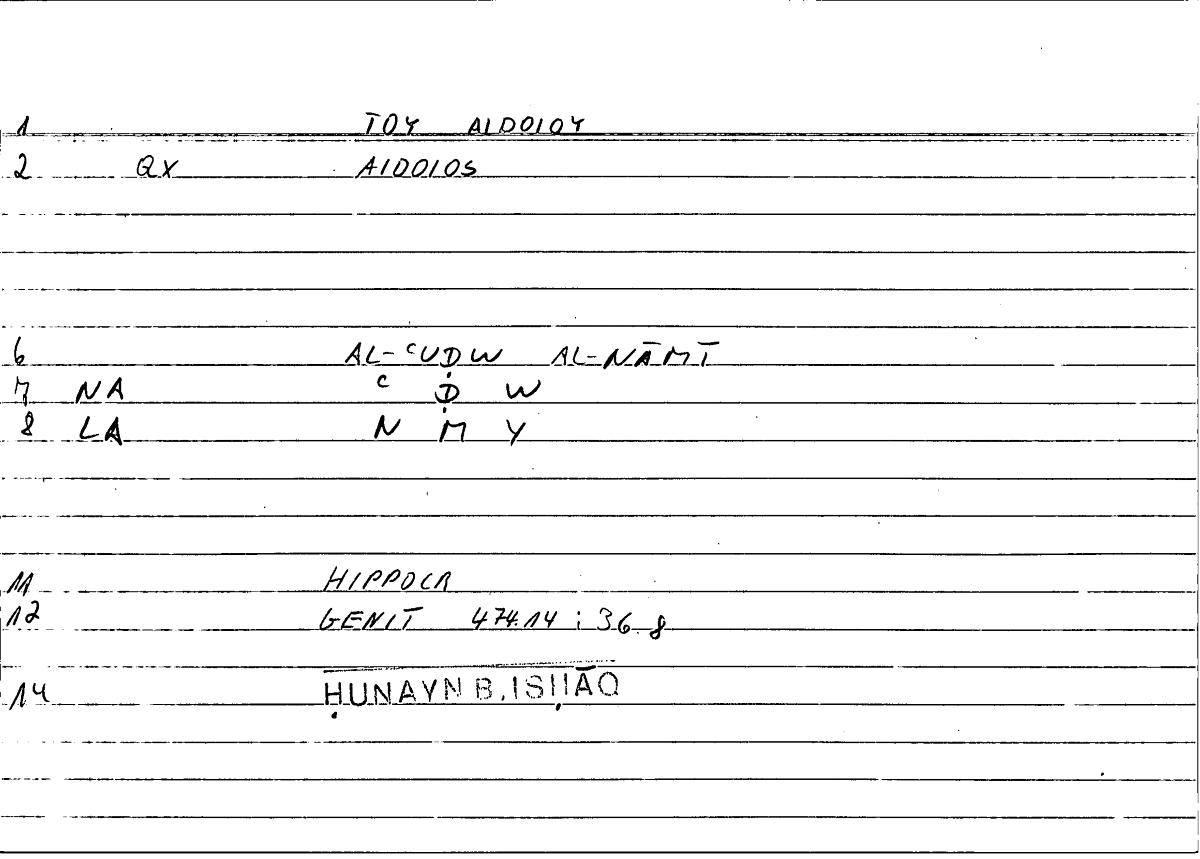 1 TOY AIDOIOY
2 QX AIDOIOS
6 AL-ʿUḌW AL-NĀMĪ
7 NA ʿ Ḍ W
8 LA N M Y
11 HIPPOCR
12 GENIT 474.14 ; 36.8
14 ḤUNAYN B. ISḤĀQ